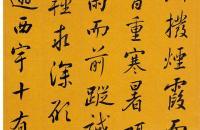 川撥煙霞而
百重寒暑躡
雨而前蹤誠
輕求深願
遊西宇十有